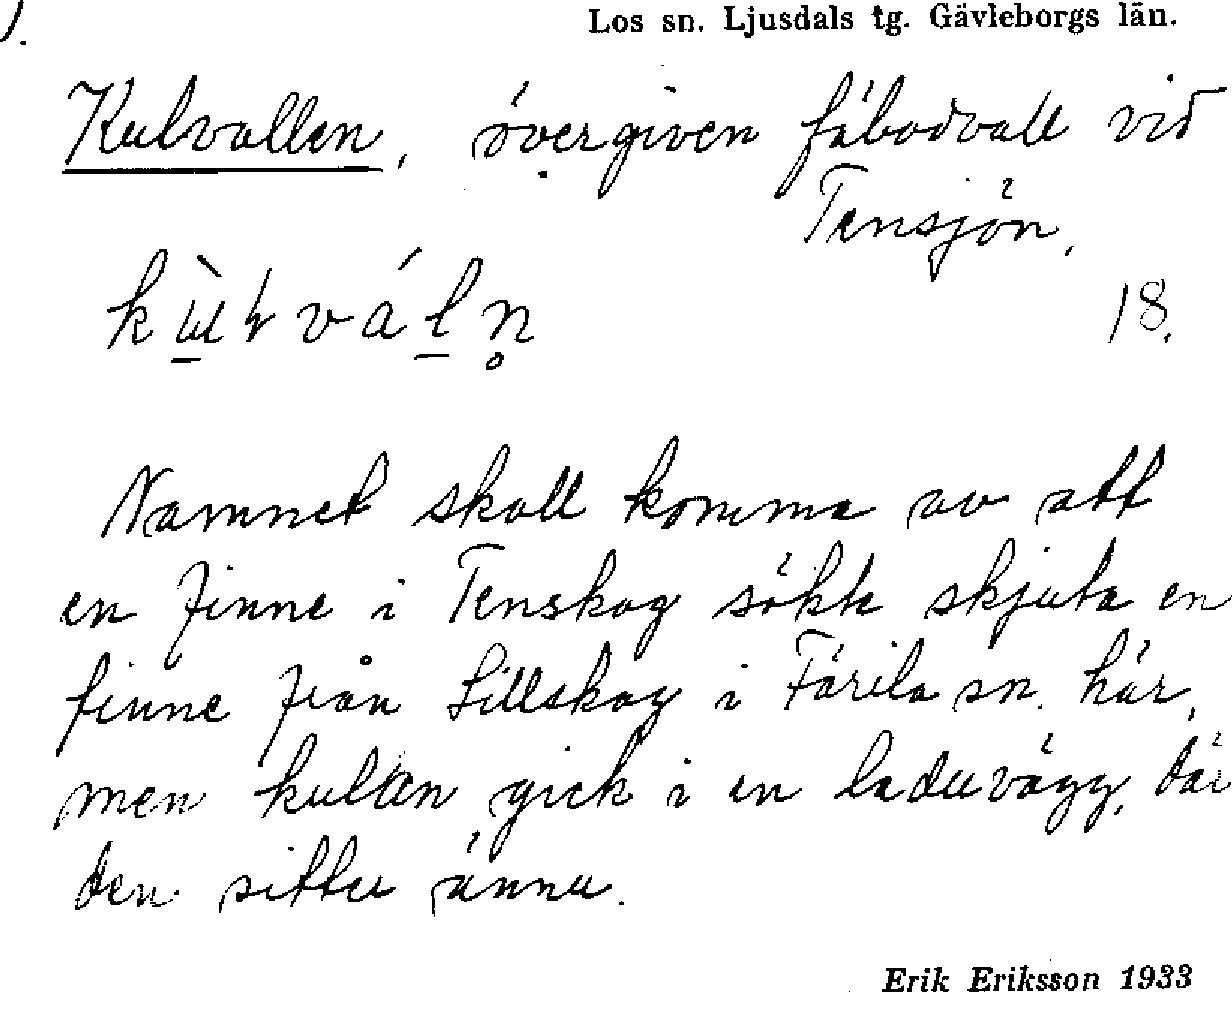 ).
Los sn. Ljusdals tg. Gävleborgs län.
Kulvallen, övergiven fäbodvall vid
Tensjön.
18.
Namnet skall komma av att
en finne i Tenskog sökte skjuta en
finne från Lillskog i Färila sn. här,
men kulan gick i en laduvägg, där
den sitter ännu.
Erik Eriksson 1933